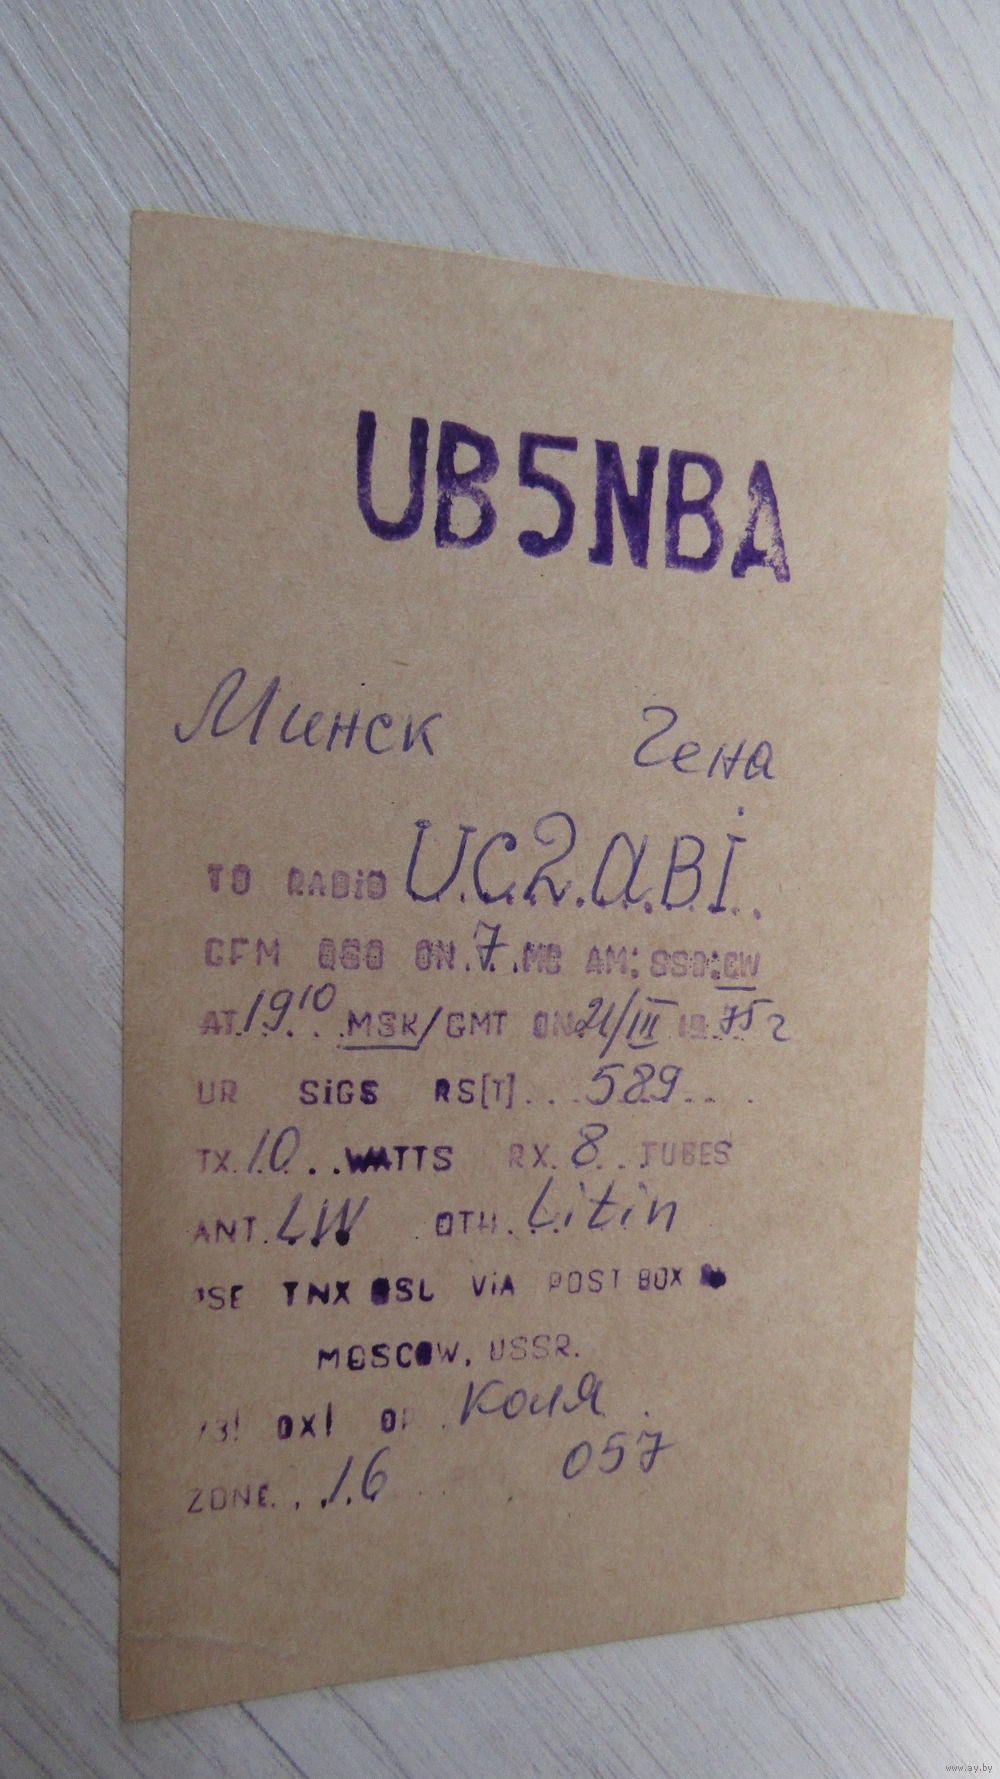 UB5NBA
Минск Гена
TO RADiO UC2ABI
CFM QSO ON 7 MC AM: SSB: CW
AT 19¹⁰ MSK/GMT ON 21/III 19 75 г
UR SiGS RS[T] 589
TX 10 WATTS RX 8 TUBES
ANT LW QTH Litin
PSE TNX QSL ViA POST BOX
MOSCOW, USSR.
73! DX! OP Коля
ZONE 16 057
www.ay.by